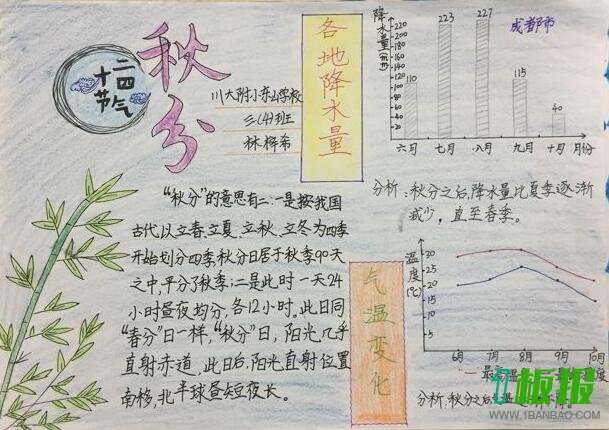 二四
十气
节
秋分
川大附小东山学校
三(4)班
林桦希
各地降水量
"秋分"的意思有二:一是按我国
古代以立春、立夏、立秋、立冬为四季
开始划分四季,秋分日居于秋季90天
之中,平分了秋季;二是此时一天24
小时昼夜均分,各12小时。此日同
"春分"日一样,"秋分"日,阳光几乎
直射赤道,此日后,阳光直射位置
南移,北半球昼短夜长。
成都市
降水量(mm)
220
200
180
160
140
120
100
80
60
40
20
110 223 227 115 40
六月 七月 八月 九月 十月 月份
分析:秋分之后,降水量比夏季逐渐
减少,直至春季。
气温变化
温度(℃)
30
25
20
15
6月 7月 8月 9月 10月
分析:秋分之后
板报
WWW.1BANBAO.COM